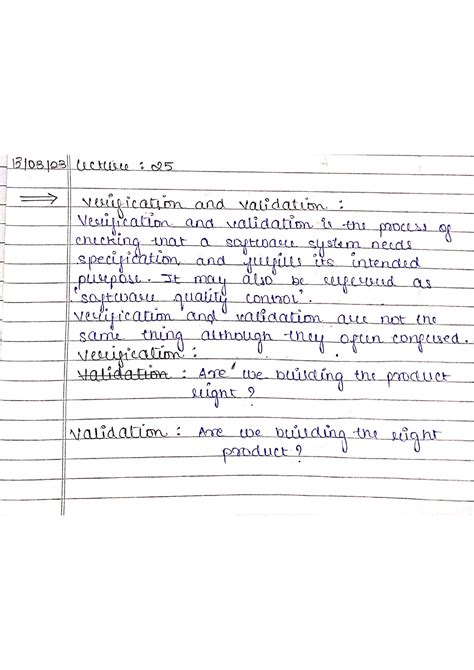 13/03/23 Lecture : 25
⇒ Verification and Validation :
Verification and validation is the process of
checking that a software system needs
specification and fulfills its intended
purpose. It may also be referred as
'software quality control'.
Verification and validation are not the
same thing although they often confused.
Verification :
Validation : Are we building the product
right ?
Validation : Are we building the right
product ?